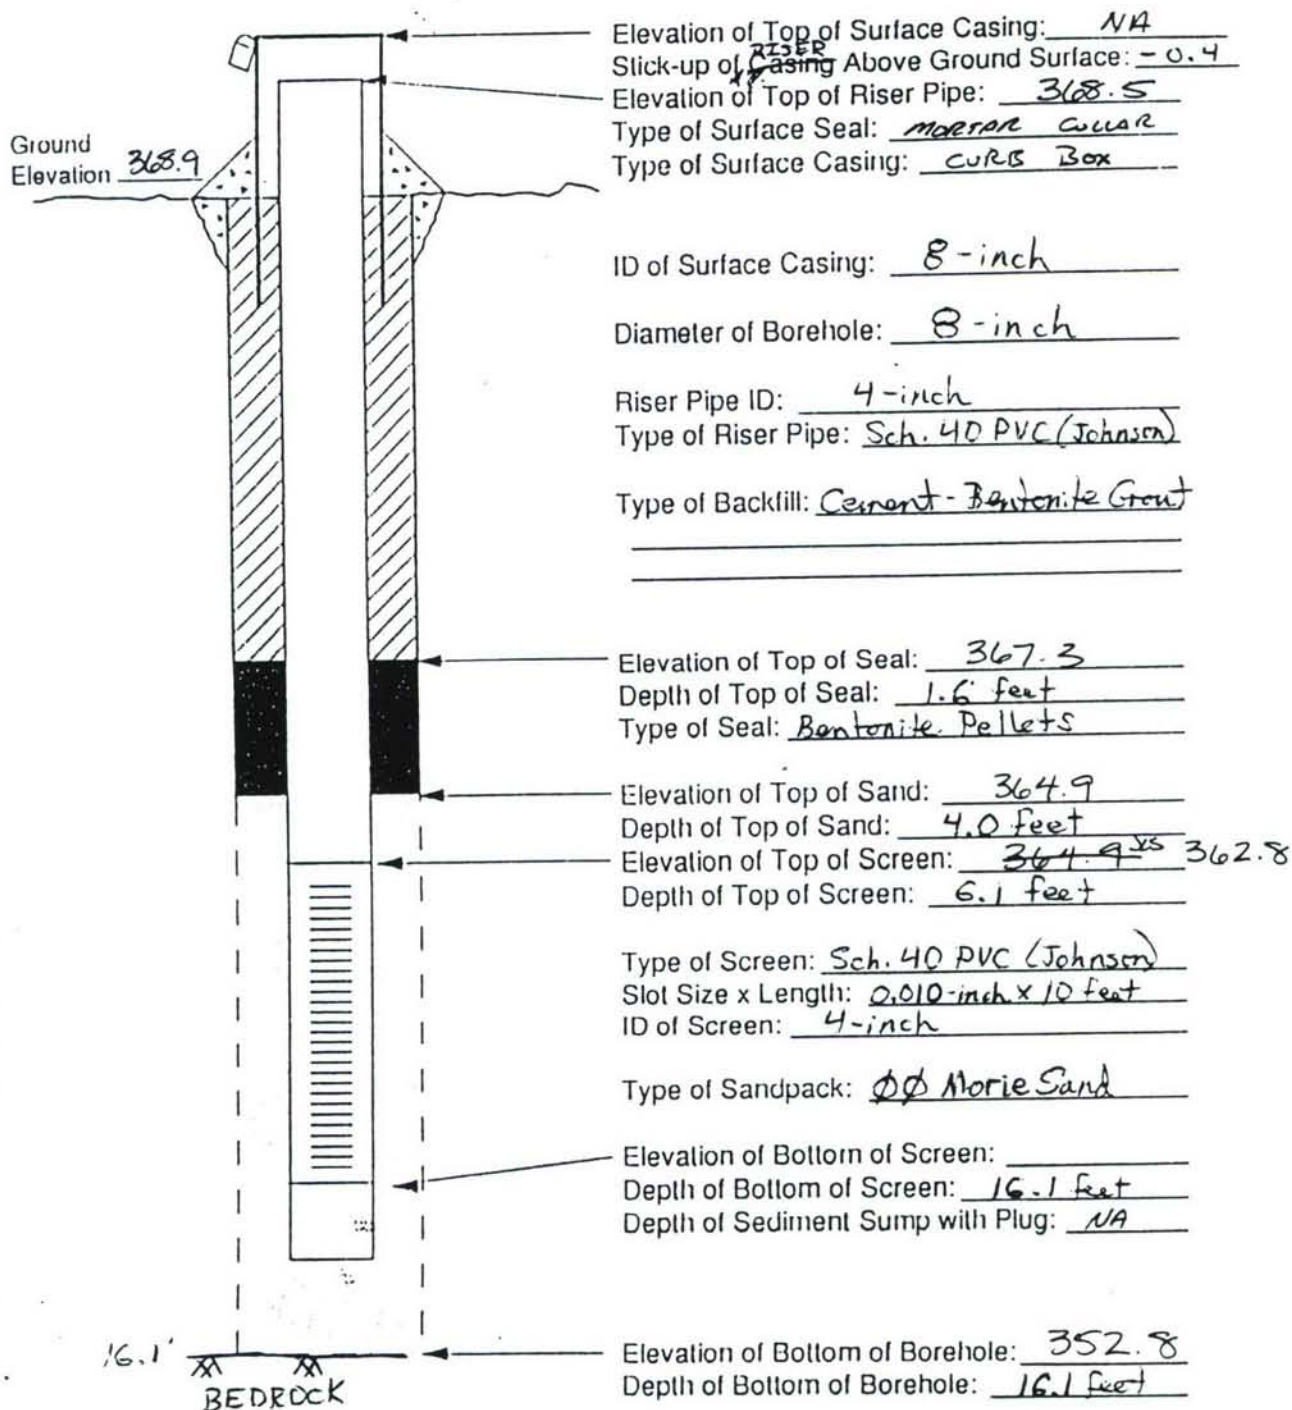 Elevation of Top of Surface Casing: NA
RISER
Stick-up of Casing Above Ground Surface: -0.4
Elevation of Top of Riser Pipe: 368.5
Type of Surface Seal: MORTAR COLLAR
Type of Surface Casing: CURB BOX
Ground
Elevation 368.9
ID of Surface Casing: 8-inch
Diameter of Borehole: 8-inch
Riser Pipe ID: 4-inch
Type of Riser Pipe: Sch. 40 PVC (Johnson)
Type of Backfill: Cement-Bentonite Grout
Elevation of Top of Seal: 367.3
Depth of Top of Seal: 1.6 feet
Type of Seal: Bentonite Pellets
Elevation of Top of Sand: 364.9
Depth of Top of Sand: 4.0 feet
Elevation of Top of Screen: 364.9 362.8
Depth of Top of Screen: 6.1 feet
Type of Screen: Sch. 40 PVC (Johnson)
Slot Size x Length: 0.010-inch x 10 feet
ID of Screen: 4-inch
Type of Sandpack: ØØ Morie Sand
Elevation of Bottom of Screen:
Depth of Bottom of Screen: 16.1 feet
Depth of Sediment Sump with Plug: NA
16.1'
BEDROCK
Elevation of Bottom of Borehole: 352.8
Depth of Bottom of Borehole: 16.1 feet